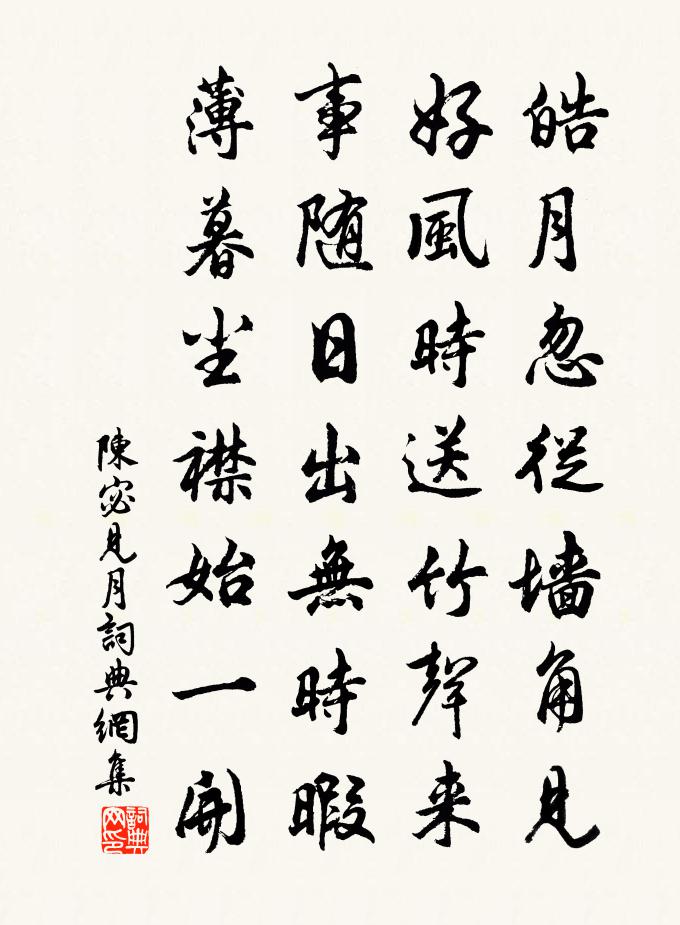 皓月忽從墻角見
好風時送竹聲来
事随日出無時暇
薄暮尘襟始一開
陳宓見月詞典網集
詞典网印